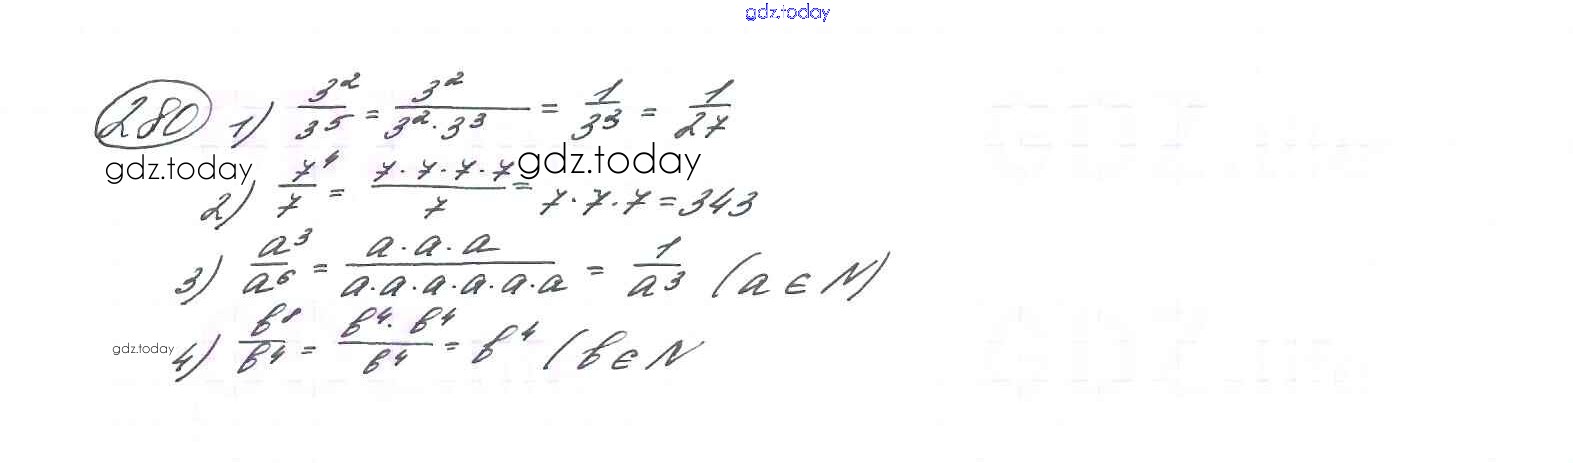 gdz.today
280 1) 3²/3⁵ = 3²/(3²·3³) = 1/3³ = 1/27
gdz.today gdz.today
2) 7⁴/7 = (7·7·7·7)/7 = 7·7·7 = 343
3) a³/a⁶ = (a·a·a)/(a·a·a·a·a·a) = 1/a³ (a ∈ N)
gdz.today
4) b⁸/b⁴ = (b⁴·b⁴)/b⁴ = b⁴ (b ∈ N